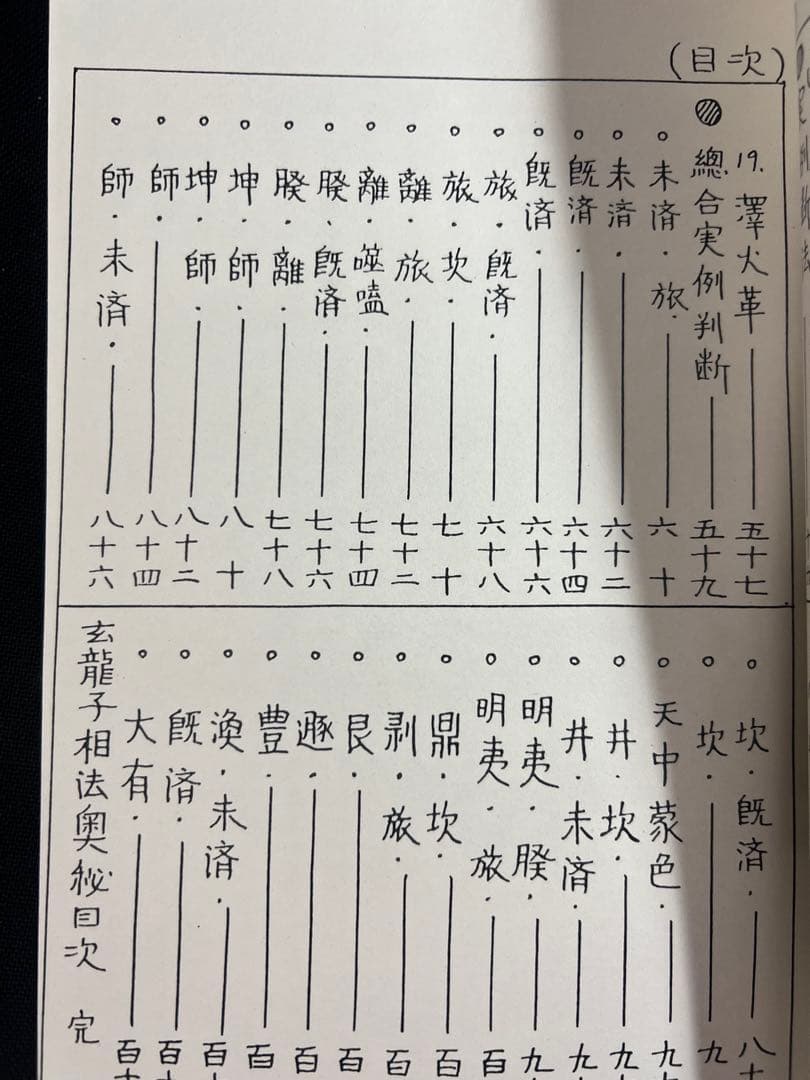 (目次)
19. 澤火革 五十七
總合実例判断 五十九
未済・旅・ 六十
未済・ 六十二
既済・ 六十四
既済・ 六十六
旅・既済・ 六十八
旅・坎・ 七十
離・旅・ 七十二
離・噬嗑・ 七十四
睽・既済・ 七十六
睽・離・ 七十八
坤・師・ 八十
坤・師・ 八十二
師・ 八十四
師・未済・ 八十六
坎・既済・ 八十
坎・ 九
天中蒙色・ 九
井・坎・ 九
井・未済・ 九
明夷・睽・ 九
明夷・旅・ 百
鼎・坎・ 百
剥・旅・ 百
艮・ 百
遯・ 百
豊・ 百
渙・未済・ 百
既済・ 百
大有・ 百
玄龍子相法奥秘目次 完